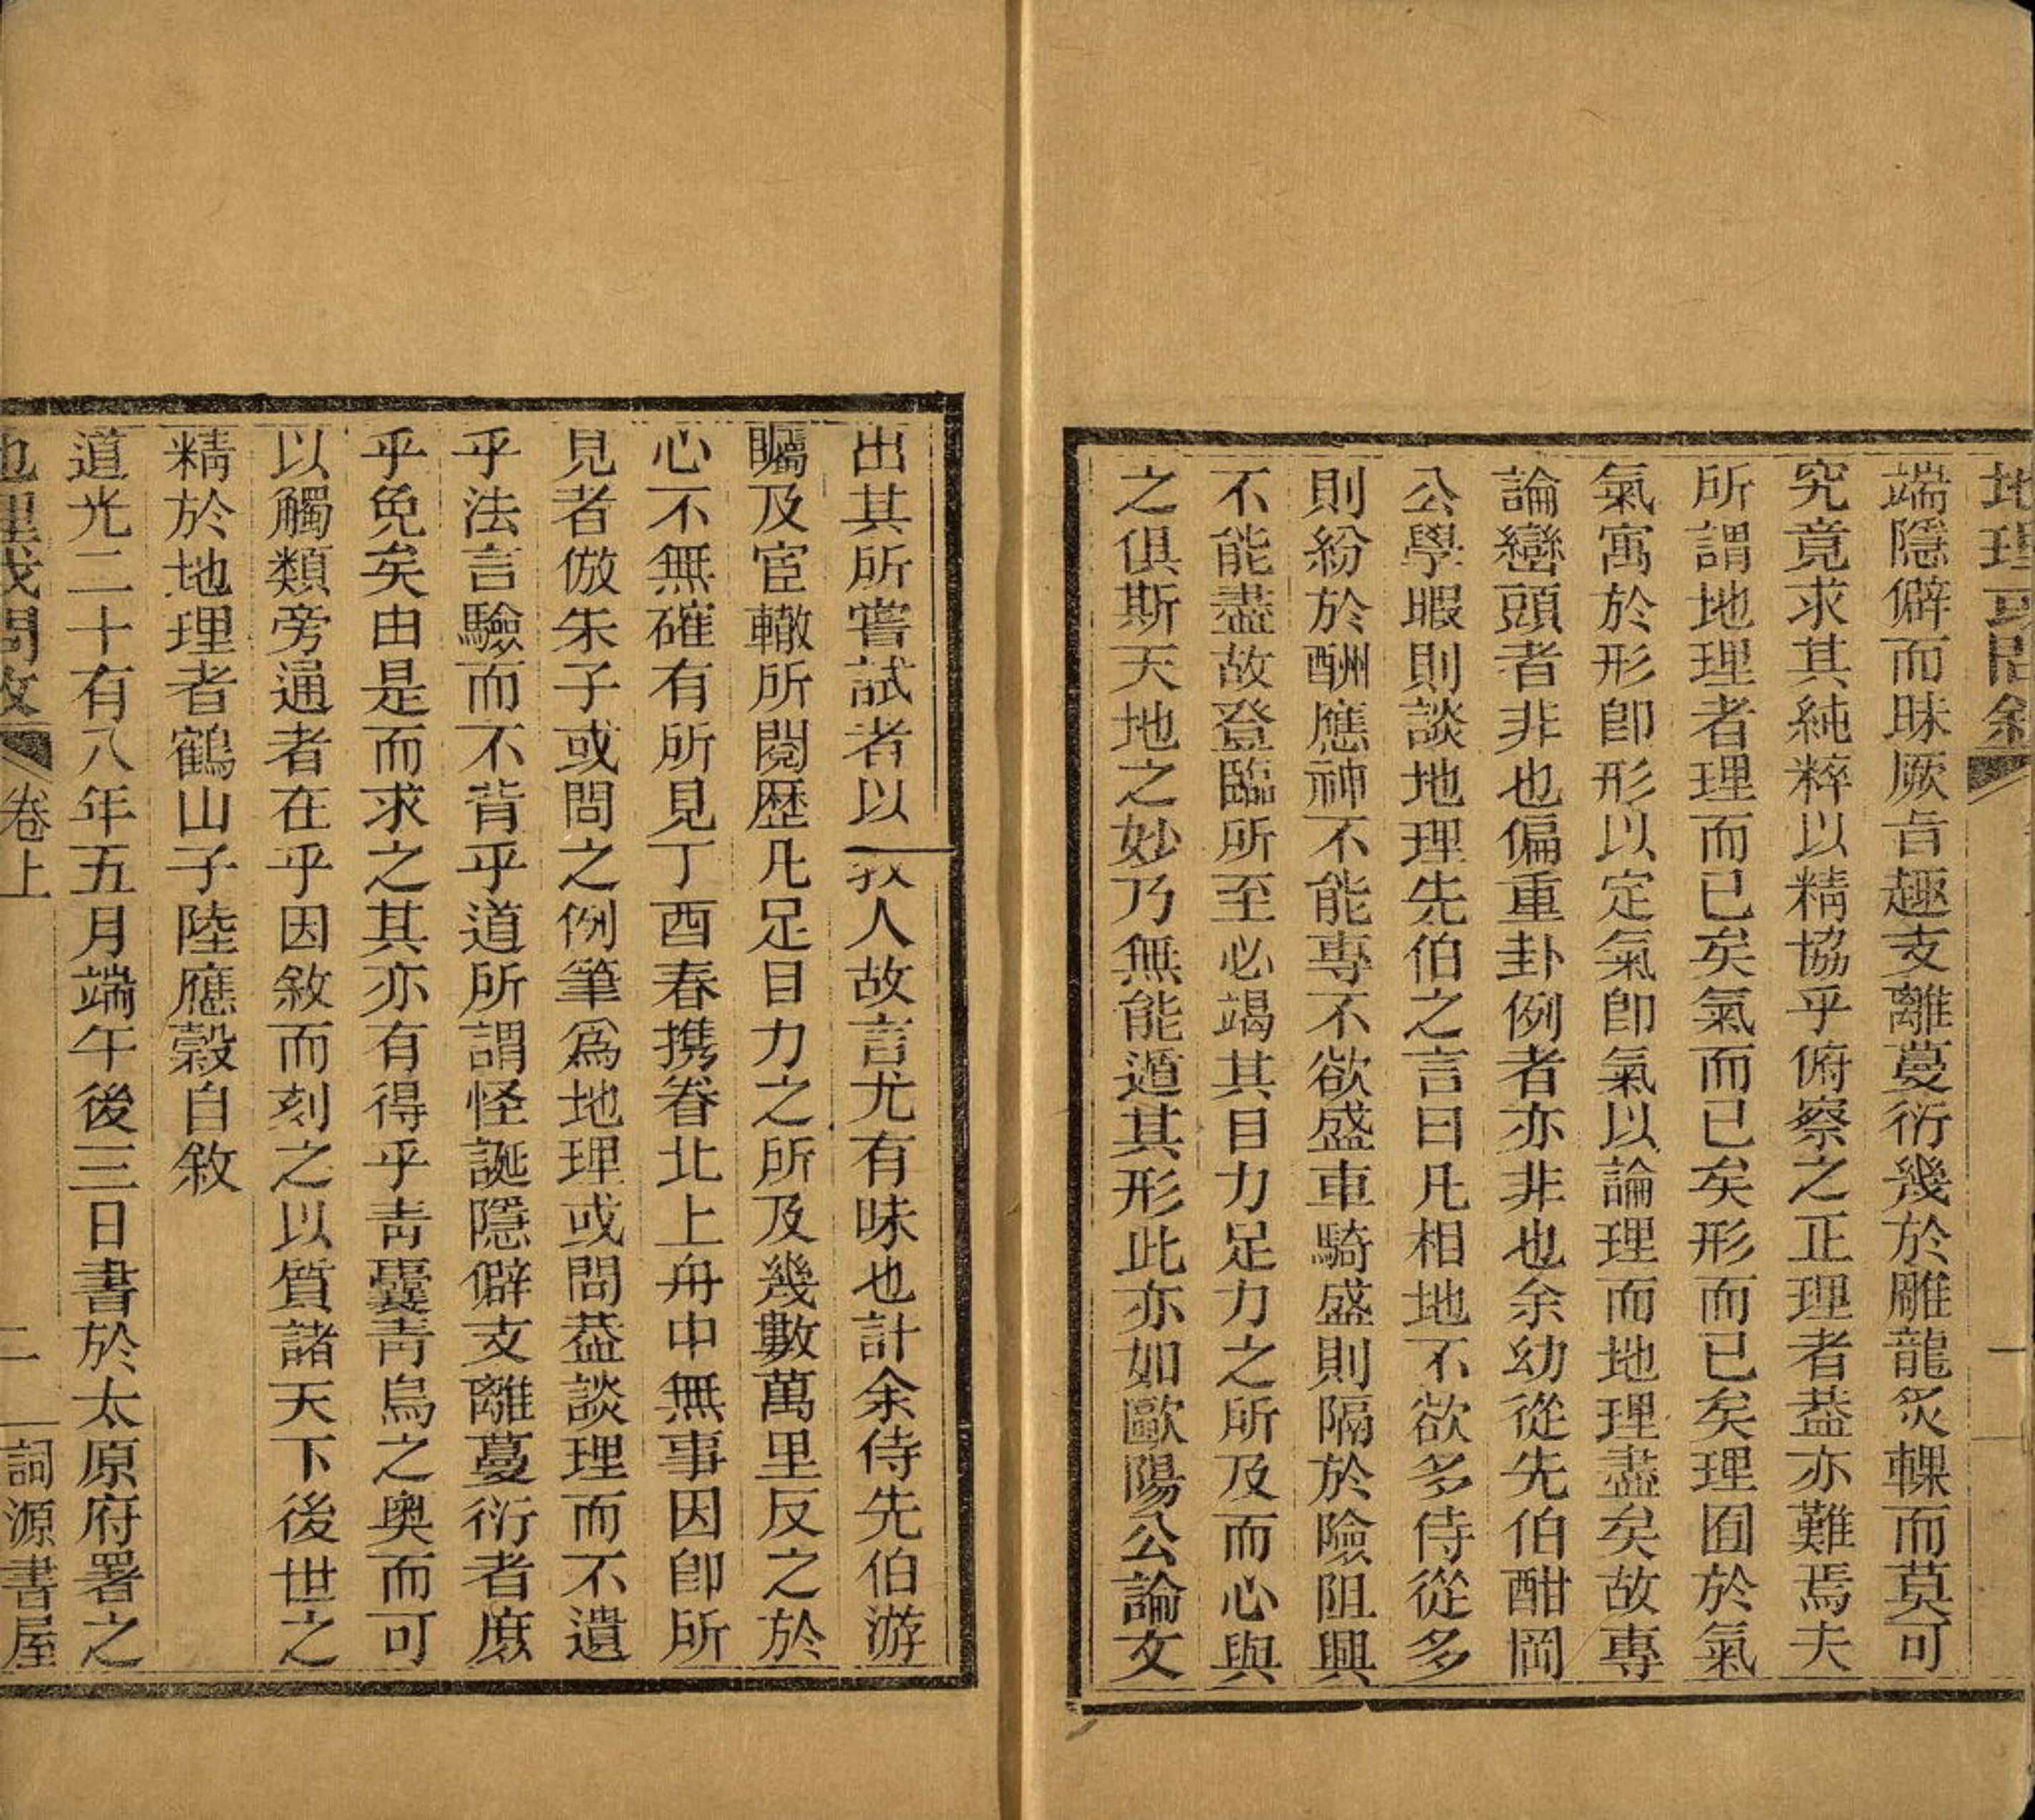 地理或問敘
一
端隱僻而昧厥旨趣支離蔓衍幾於雕龍炙輠而莫可
究竟求其純粹以精協乎俯察之正理者葢亦難焉夫
所謂地理者理而已矣氣而已矣形而已矣理囿於氣
氣寓於形卽形以定氣卽氣以論理而地理盡矣故專
論巒頭者非也偏重卦例者亦非也余幼從先伯酣岡
公學暇則談地理先伯之言曰凡相地不欲多侍從多
則紛於酬應神不能專不欲盛車騎盛則隔於險阻興
不能盡故登臨所至必竭其目力足力之所及而心與
之俱斯天地之妙乃無能遁其形此亦如歐陽公論文
出其所嘗試者以教人故言尤有味也計余侍先伯游
矚及宦轍所閱歷凡足目力之所及幾數萬里反之於
心不無確有所見丁酉春携眷北上舟中無事因卽所
見者倣朱子或問之例筆爲地理或問葢談理而不遺
乎法言驗而不背乎道所謂怪誕隱僻支離蔓衍者庶
乎免矣由是而求之其亦有得乎靑囊靑烏之奧而可
以觸類旁通者在乎因敘而刻之以質諸天下後世之
精於地理者鶴山子陸應穀自敘
道光二十有八年五月端午後三日書於太原府署之
地理或問敘
卷上
二
詞源書屋